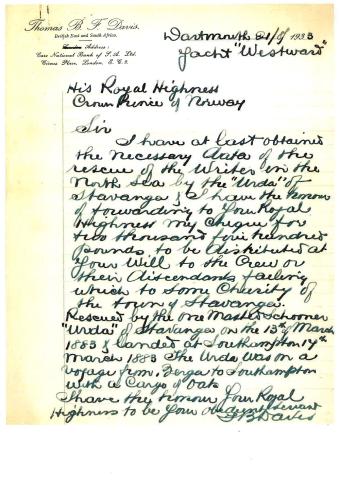 Thomas B. F. Davis.
British East and South Africa.
London Address:
Care National Bank of S. A. Ltd.
Circus Place, London, E. C. 2.
Dartmouth 21/8/1933
Yacht "Westward"
His Royal Highness
Crown Prince of Norway
Sir
I have at last obtained
the necessary data of the
rescue of the Writer in the
North Sea by the "Urda" of
Stavanger & I have the honour
of forwarding to Your Royal
Highness my cheque for
two thousand four hundred
pounds to be distributed at
Your Will to the Crew or
their Discendants failing
which to some Charity of
the town of Stavanger.
Rescued by the one Masted Schooner
"Urda" of Stavanger on the 13th of March
1883 & landed at Southampton 17th
March 1883 The Urda was on a
voyage from Berga to Southampton
with a Cargo of Oats
I have the honour Your Royal
Highness to be Your obedient servant
T B Davis